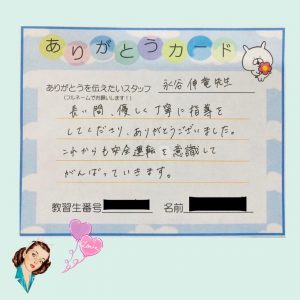 ありがとうカード
ありがとうを伝えたいスタッフ
(フルネームでお願いします！)
永谷伸竜先生
長い間、優しく丁寧に指導を
してくださり、ありがとうございました。
これからも安全運転を意識して
がんばっていきます。
教習生番号 名前
Love